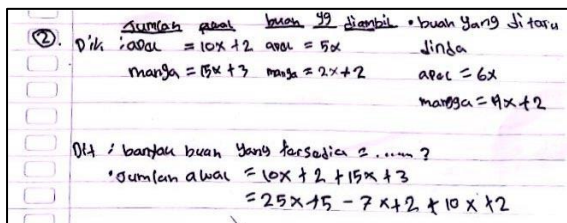 Jumlah awal buah yg diambil • buah yang ditaru
②. Dik : apel = 10x + 2 apel = 5x dinda
mangga = 15x + 3 mangga = 2x + 2 apel = 6x
mangga = 4x + 2
Dit : banyak buah yang tersedia = ...... ?
• Jumlah awal = 10x + 2 + 15x + 3
= 25x + 5 - 7x + 2 + 10x + 2